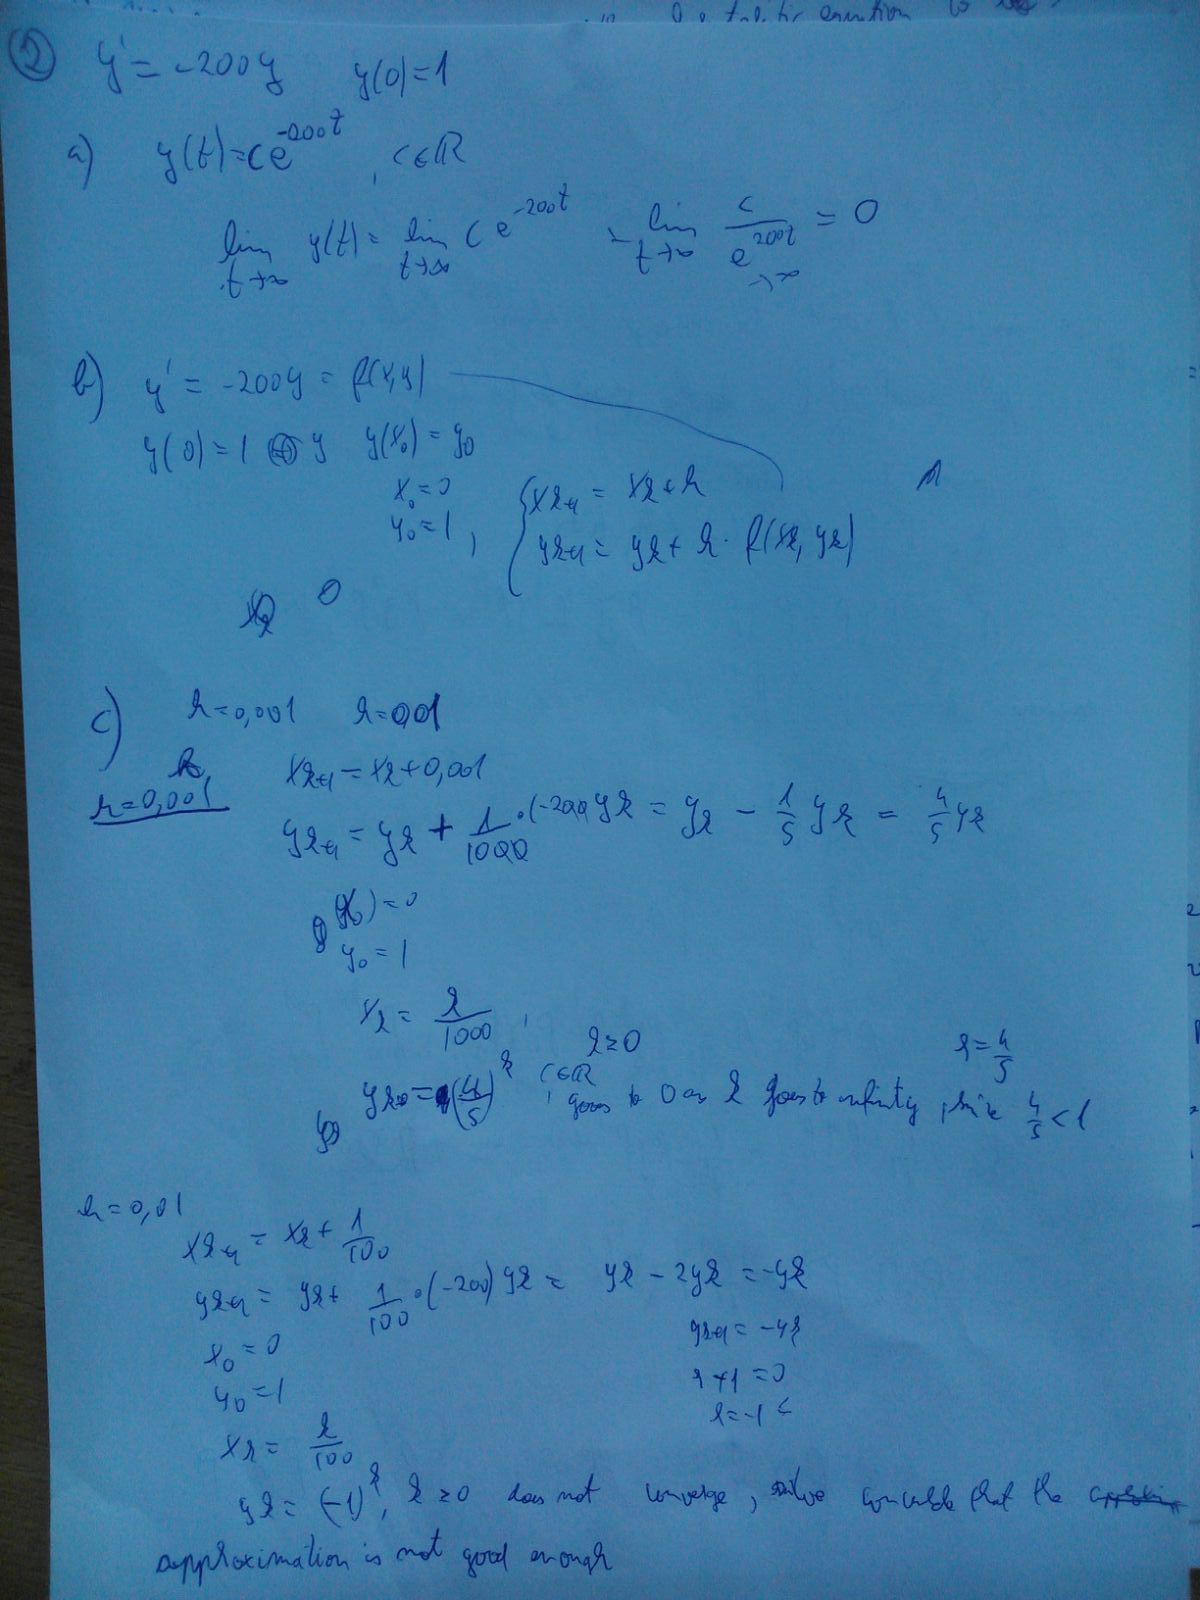 equation
② y' = -200y y(0)=1
a) y(t)=ce^{-200t}, c∈ℝ
lim_{t→∞} y(t) = lim_{t→∞} c e^{-200t} = lim_{t→∞} c/e^{200t} = 0
→∞
b) y' = -200y = f(x,y)
y(0)=1 y y(x₀)=y₀
x₀=0
y₀=1, { x_{k+1} = x_k+h
y_{k+1} = y_k + h · f(x_k, y_k)
0
c) h=0,001 h=0,01
h=0,001 x_{k+1} = x_k+0,001
y_{k+1} = y_k + 1/1000 ·(-200)y_k = y_k - 1/5 y_k = 4/5 y_k
(x₀)=0
y₀=1
x_k = k/1000,
k≥0 r=4/5
y_k = (4/5)^k, c∈ℝ goes to 0 as k goes to infinity, since 4/5<1
h=0,01
x_{k+1} = x_k + 1/100
y_{k+1} = y_k + 1/100 ·(-200)y_k = y_k - 2y_k = -y_k
x₀=0 y_{k+1} = -y_k
y₀=1 r+1=0
r=-1
x_k = k/100
y_k = (-1)^k, k≥0 does not converge, conclude that the
approximation is not good enough